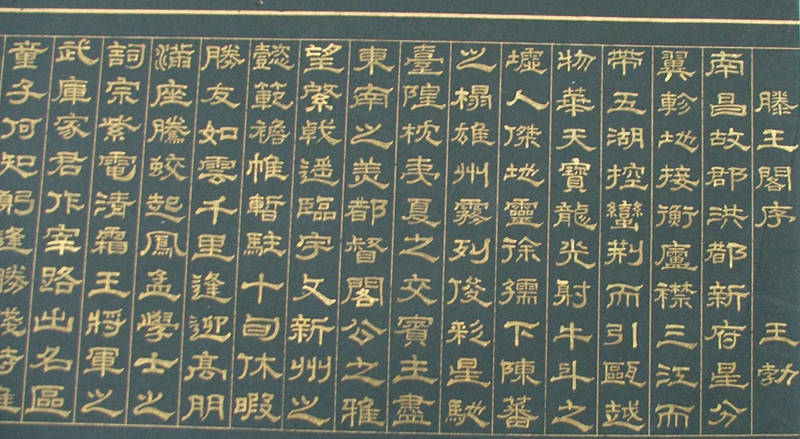 滕王閣序 王勃
南昌故郡洪都新府星分
翼軫地接衡廬襟三江而
帶五湖控蠻荊而引甌越
物華天寶龍光射牛斗之
墟人傑地靈徐孺下陳蕃
之榻雄州霧列俊彩星馳
臺隍枕夷夏之交賓主盡
東南之美都督閣公之雅
望棨戟遥臨宇文新州之
懿範襜帷暫駐十旬休暇
勝友如雲千里逢迎高朋
滿座騰蛟起鳳孟學士之
詞宗紫電清霜王將軍之
武庫家君作宰路出名區
童子何知躬逢勝餞時維